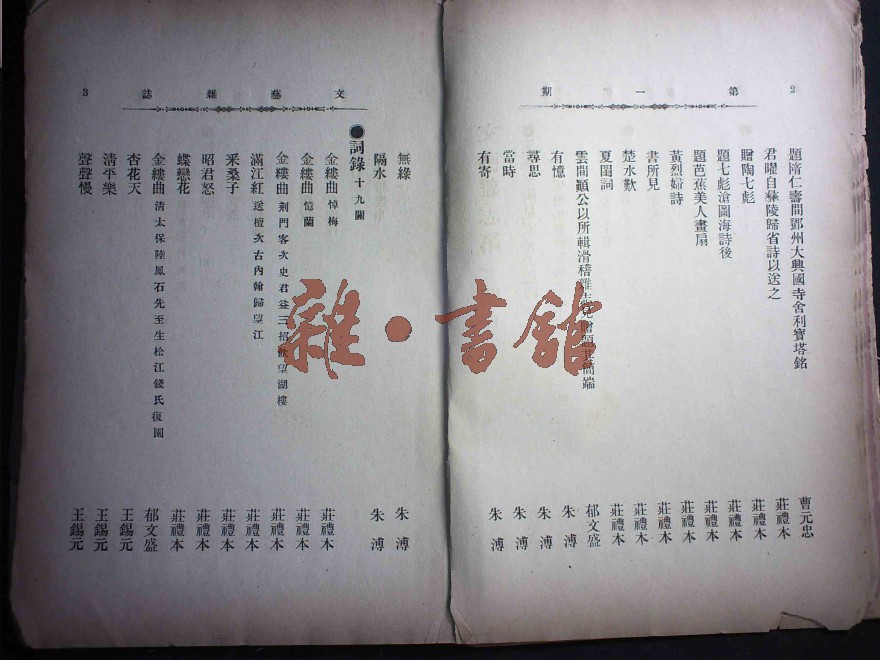 期一第
2
題隋仁壽間鄧州大興國寺舍利寶塔銘 曹元忠
君曜自彝陵歸省詩以送之 莊禮本
贈陶七彪 莊禮本
題七彪滄圖海詩後 莊禮本
題芭蕉美人畫扇 莊禮本
黃烈婦詩 莊禮本
書所見 莊禮本
楚水歎 莊禮本
夏閨詞 郁文盛
雲間顚公以所輯滑稽雜 見贈題 簡端 朱溥
有憶 朱溥
尋思 朱溥
當時 朱溥
有寄 朱溥
誌雜藝文
3
無緣 朱溥
隔水 朱溥
●詞錄 十九闋
金縷曲 悼梅 莊禮本
金縷曲 憶蘭 莊禮本
金縷曲 荆門客次史君益三招飲望湖樓 莊禮本
滿江紅 送檀次右內翰歸望江 莊禮本
釆桑子 莊禮本
昭君怒 莊禮本
蝶戀花 莊禮本
金縷曲 清太保陸鳳石先至生松江錢氏復園 郁文盛
杏花天 王錫元
清平樂 王錫元
聲聲慢 王錫元
雜·書館